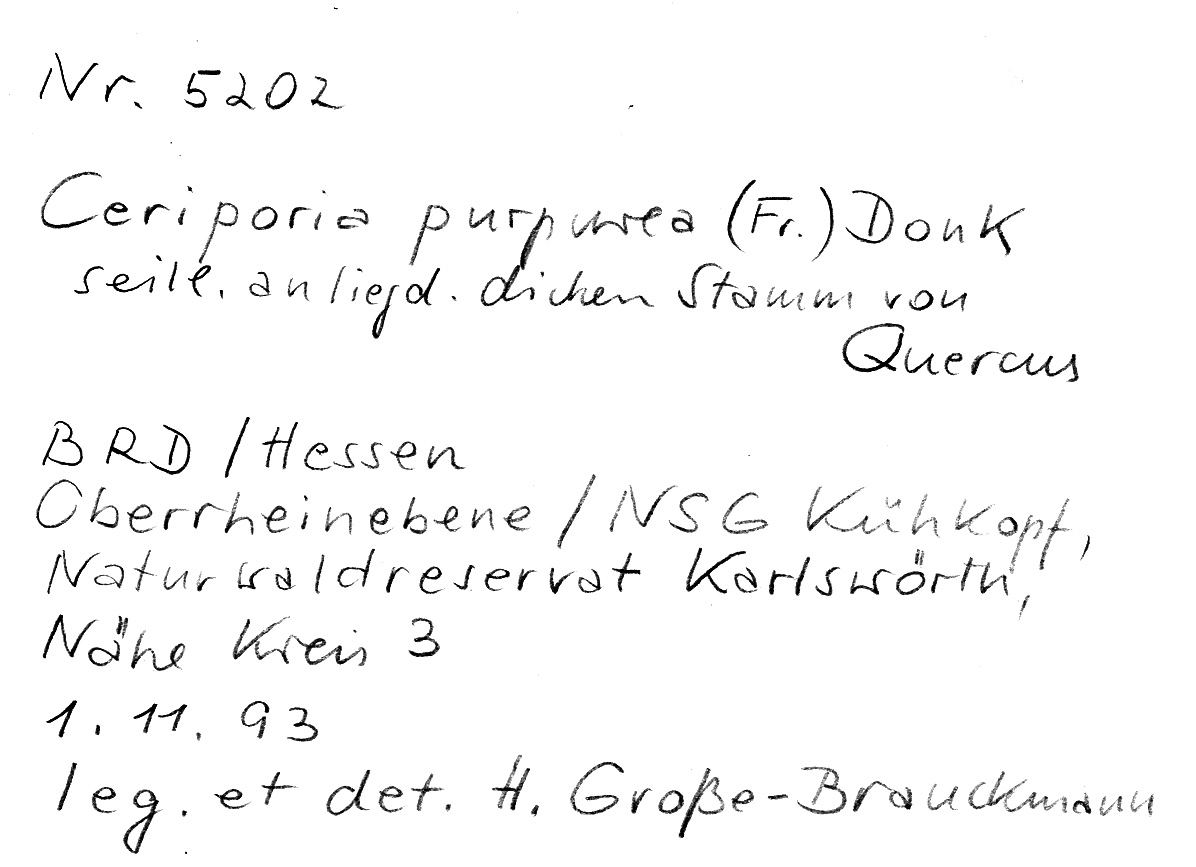 Nr. 5202
Ceriporia purpurea (Fr.) Donk
seitl. an liegd. dicken Stamm von
Quercus
BRD / Hessen
Oberrheinebene / NSG Kühkopf,
Naturwaldreservat Karlswörth,
Nähe Kreis 3
1. 11. 93
leg. et det. H. Große-Brauckmann